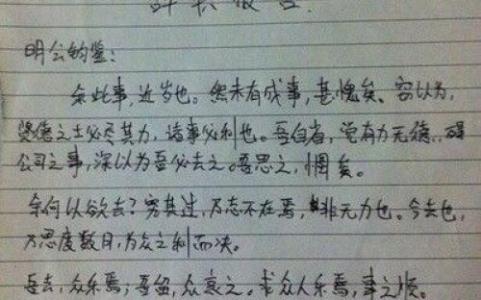 辞职报告
明公钧鉴:
余此事,近岁也。然未有成事,甚愧矣。窃以为,
贤德之士必尽其力,诸事必利也。吾自省,觉有力无德,碍
公司之事,深以为吾必去之。吾思之,惆矣。
余何以欲去?穷其过,乃志不在焉,非无力也。今去也,
乃思度数月,为众之利而决。
吾去,众乐焉;吾留,众哀之。求众人乐焉,事之顺。